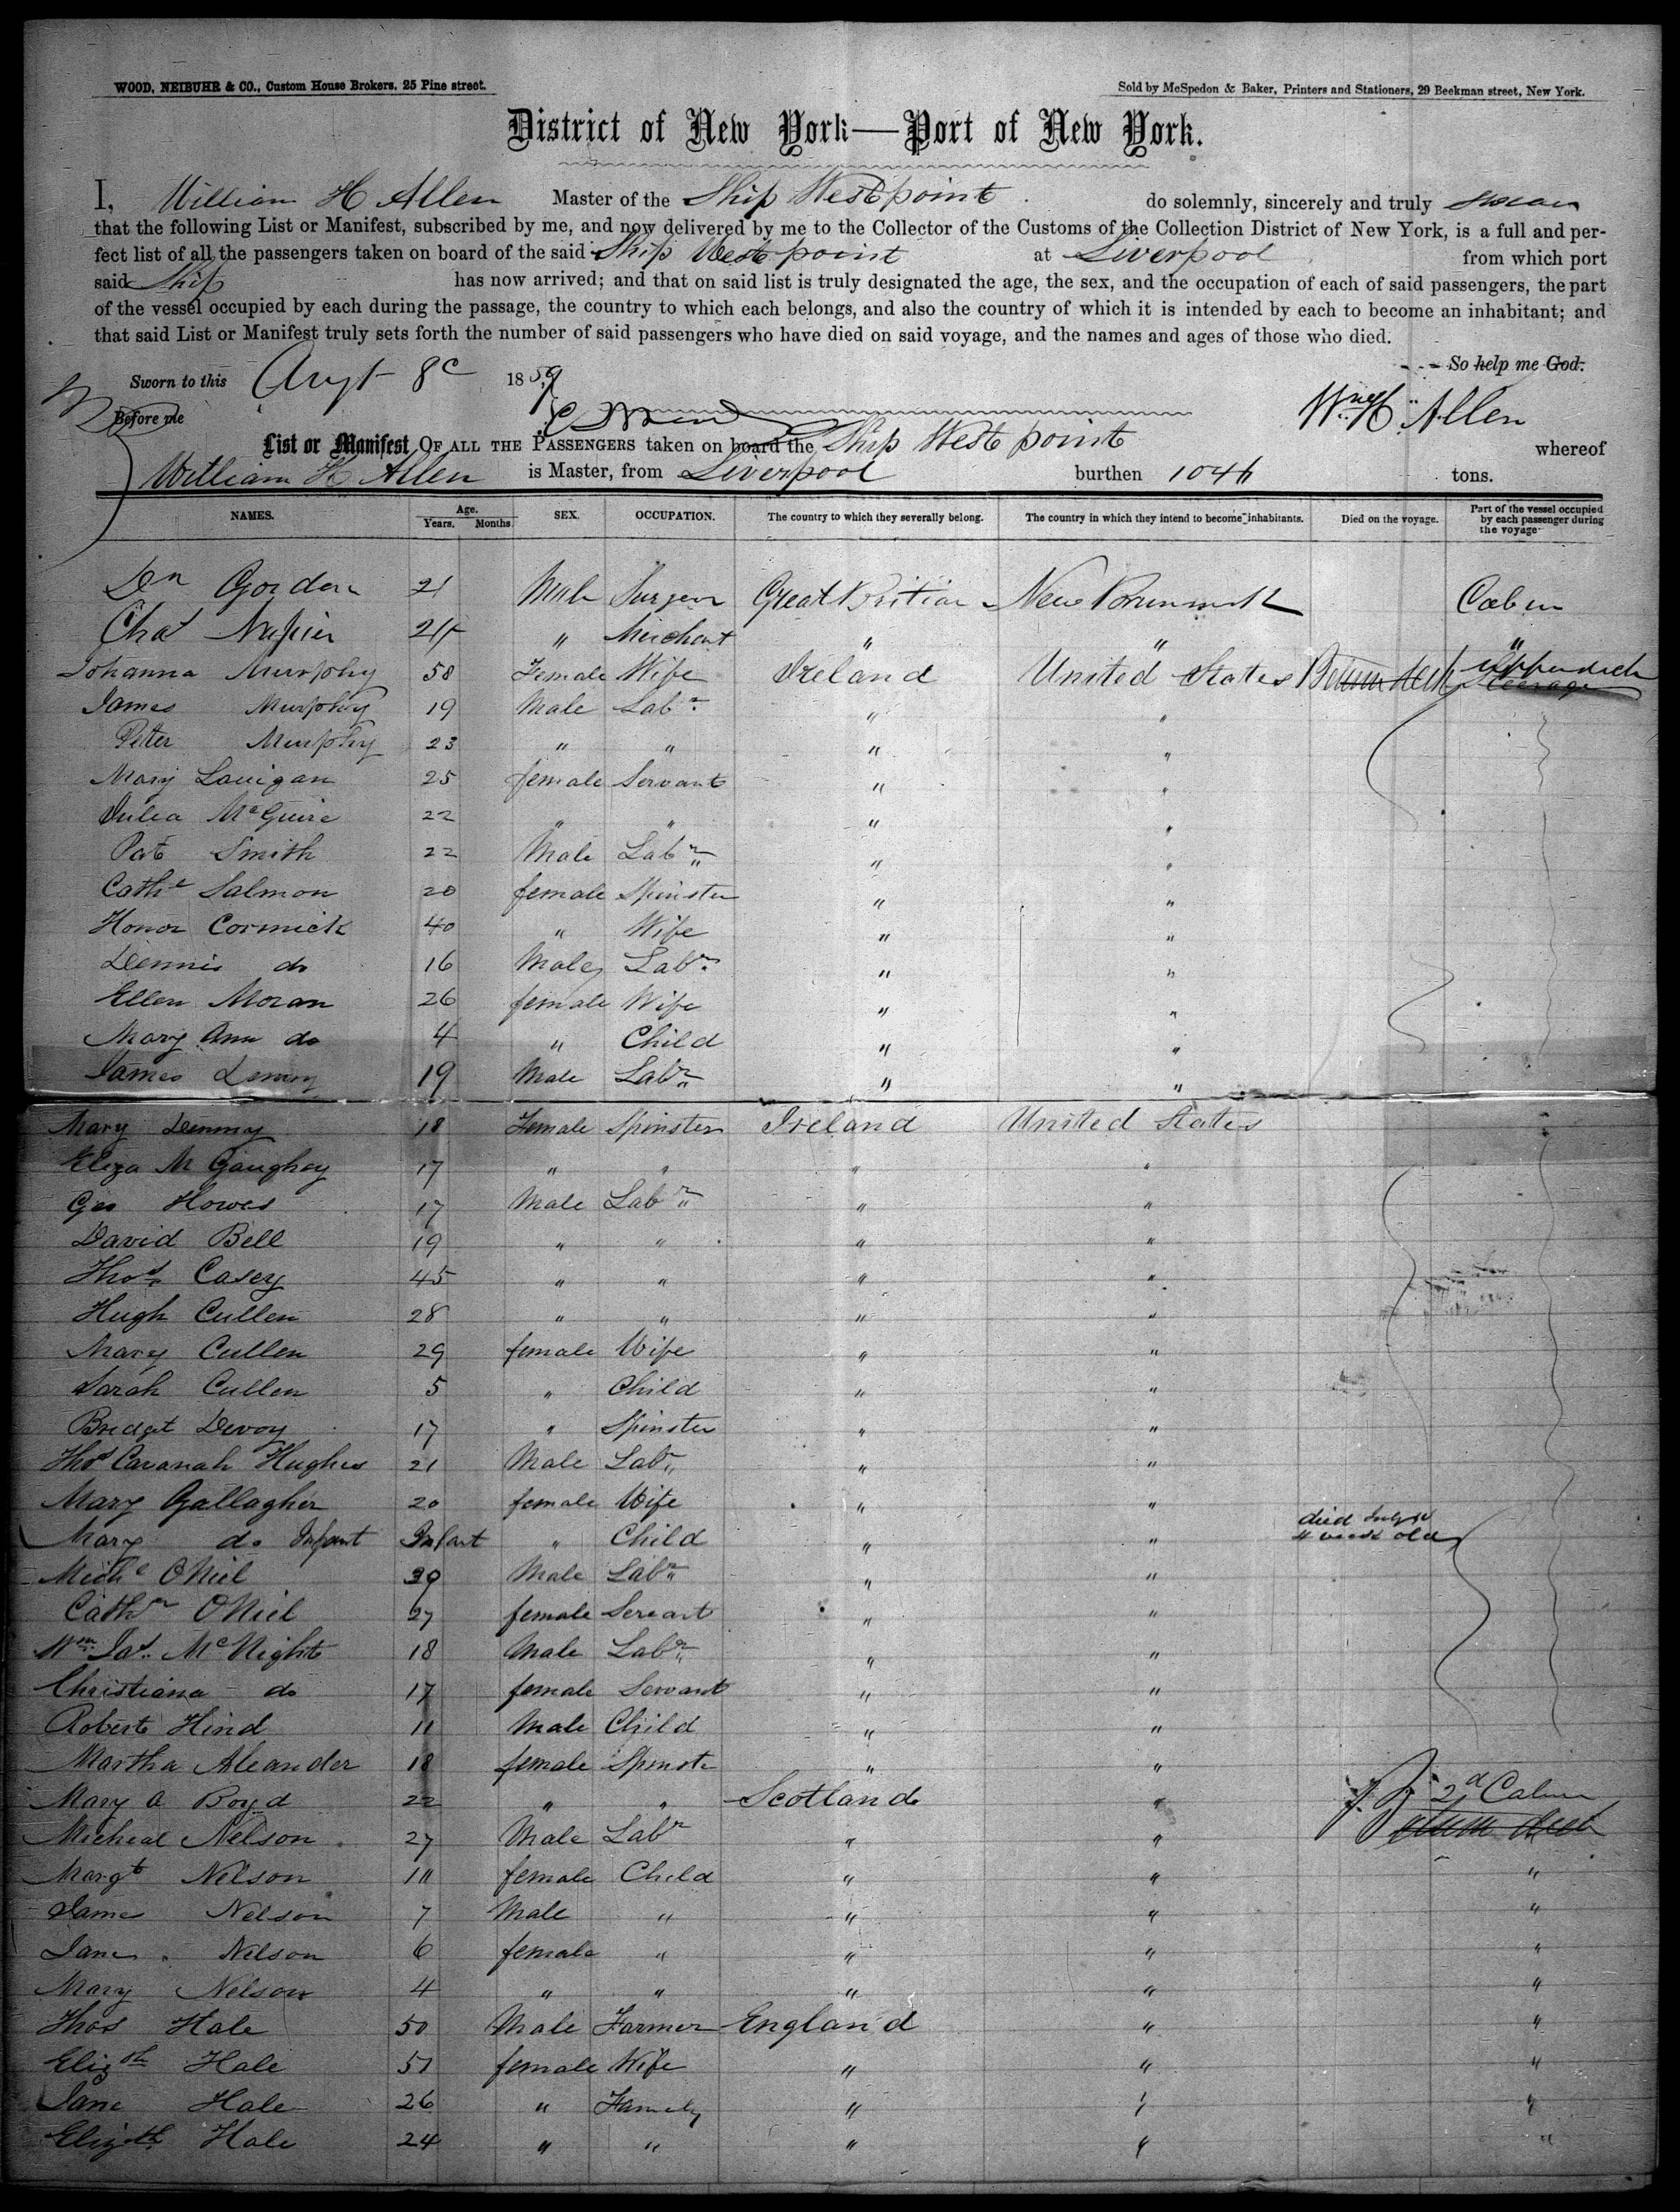 WOOD, NEIBUHR & CO., Custom House Brokers, 25 Pine street.
Sold by McSpedon & Baker, Printers and Stationers, 29 Beekman street, New York.
District of New York—Port of New York.
I, William H Allen Master of the Ship Westpoint do solemnly, sincerely and truly swear
that the following List or Manifest, subscribed by me, and now delivered by me to the Collector of the Customs of the Collection District of New York, is a full and per-
fect list of all the passengers taken on board of the said Ship Westpoint at Liverpool from which port
said Ship has now arrived; and that on said list is truly designated the age, the sex, and the occupation of each of said passengers, the part
of the vessel occupied by each during the passage, the country to which each belongs, and also the country of which it is intended by each to become an inhabitant; and
that said List or Manifest truly sets forth the number of said passengers who have died on said voyage, and the names and ages of those who died.
So help me God.
Sworn to this Augt 8 1859
Before me
Wm H Allen
List or Manifest OF ALL THE PASSENGERS taken on board the Ship West point whereof
William H Allen is Master, from Liverpool burthen 1046 tons.
NAMES. Age. Years. Months. SEX. OCCUPATION. The country to which they severally belong. The country in which they intend to become inhabitants. Died on the voyage. Part of the vessel occupied by each passenger during the voyage
Dr Gordon 21 Male Surgeon Great Britian New Brunswick Cabin
Chas Napier 24 " Merchant " " "
Johanna Murphy 58 Female Wife Ireland United States Upperdeck Steerage
James Murphy 19 Male Labr " "
Peter Murphy 23 " " " "
Mary Lanigan 25 female Servant " "
Julia McGuire 22 " " " "
Pat Smith 22 Male Labr " "
Cathe Salmon 20 female Spinster " "
Honor Cormick 40 " Wife " "
Dennis do 16 Male Labr " "
Ellen Moran 26 female Wife " "
Mary Ann do 4 " Child " "
James Denny 19 Male Labr " "
Mary Denny 18 Female Spinster Ireland United States
Eliza M Gaughey 17 " " " "
Geo Howes 17 Male Labr " "
David Bell 19 " " " "
Thos Casey 45 " " " "
Hugh Cullen 28 " " " "
Mary Cullen 29 female Wife " "
Sarah Cullen 5 " Child " "
Bridget Devoy 17 " Spinster " "
Thos Cavanah Hughes 21 Male Labr " "
Mary Gallagher 20 female Wife " "
Mary do Infant Infant " Child " " died July 4 week old
Michl ONeil 39 Male Labr " "
Cathr ONeil 27 female Servant " "
Wm Jas McNight 18 Male Labr " "
Christiana do 17 female Servant " "
Robert Hind 11 Male Child " "
Martha Aleander 18 female Spinste " "
Mary A Boyd 22 " " Scotland " 2d Cabin
Micheal Nelson 27 Male Labr " "
Margt Nelson 10 female Child " " "
James Nelson 7 Male " " " "
Jane Nelson 6 female " " " "
Mary Nelson 4 " " " " "
Thos Hale 50 Male Farmer England " "
Elizth Hale 51 female Wife " " "
Jane Hale 26 " Family " " "
Elizth Hale 24 " " " " "